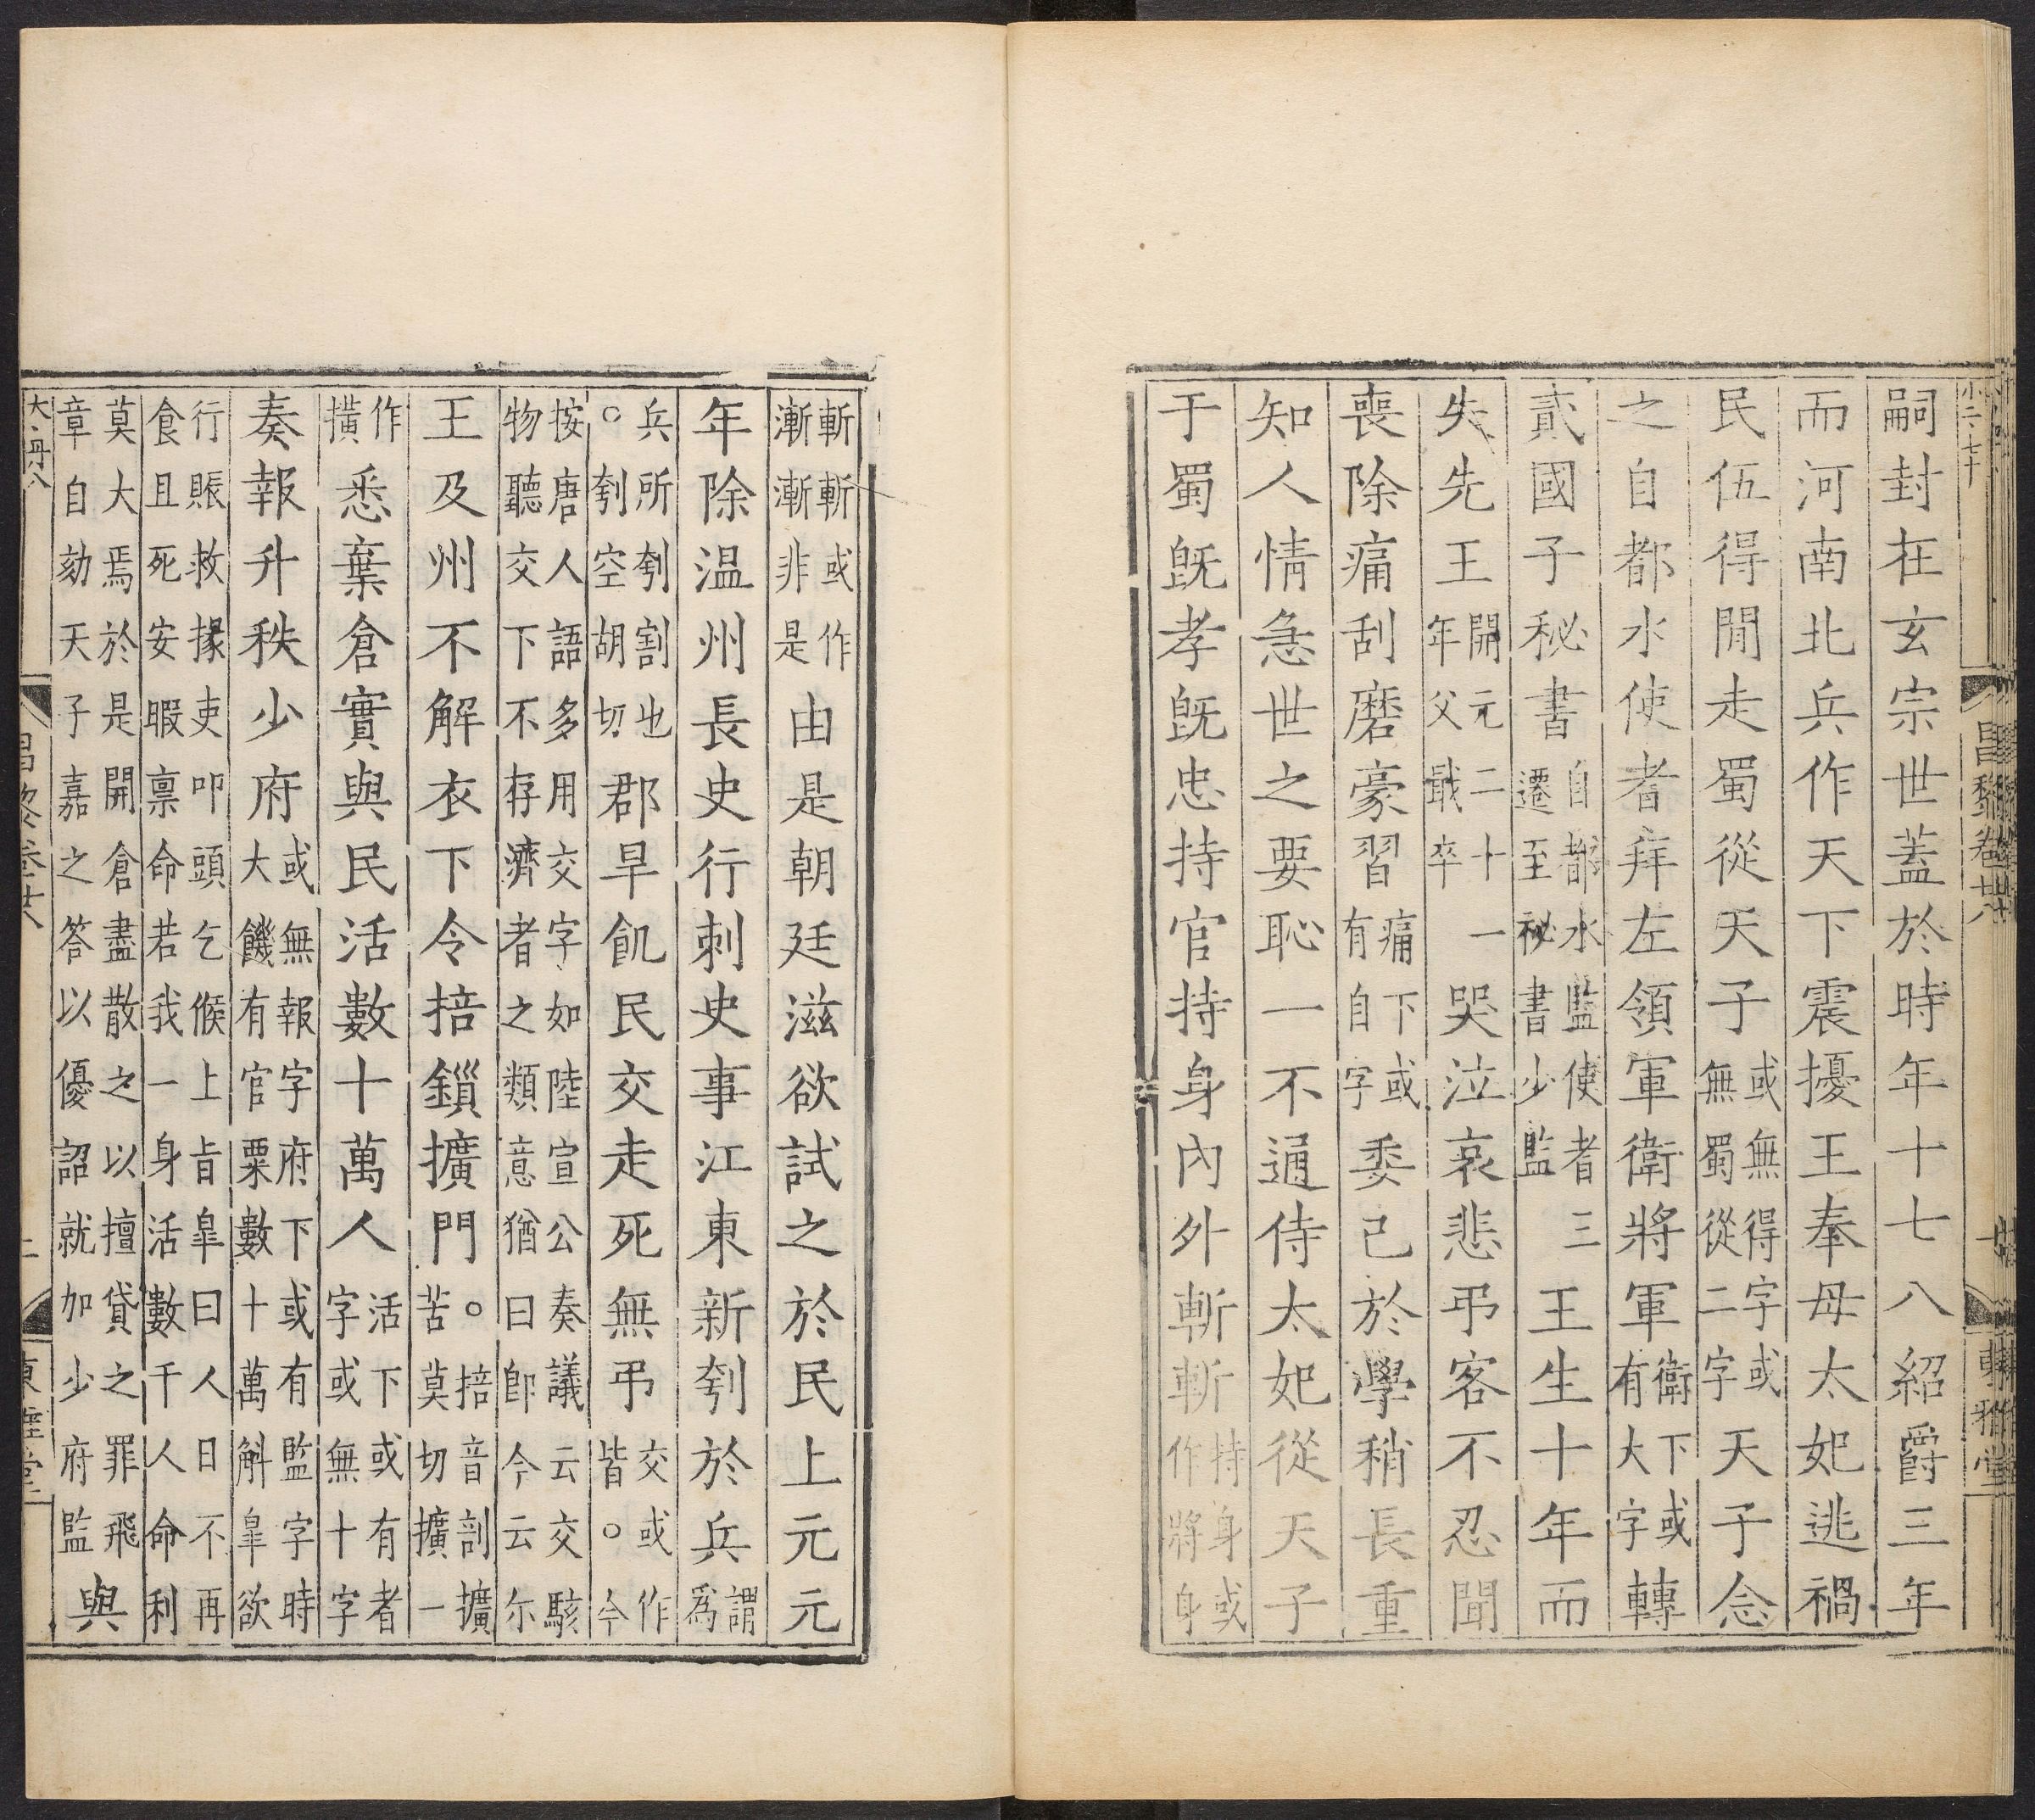 嗣封在玄宗世蓋於時年十七八紹爵三年
而河南北兵作天下震擾王奉母太妃逃禍
民伍得閒走蜀從天子或無得字或無蜀從二字天子念
之自都水使者拜左領軍衛將軍衛下或有大字轉
貳國子秘書自都水監使者三遷至祕書少監王生十年而
失先王開元二十一年父戢卒哭泣哀悲弔客不忍聞
喪除痛刮磨豪習痛下或有自字委己於學稍長重
知人情急世之要恥一不通侍太妃從天子
于蜀旣孝旣忠持官持身內外斬斬持身或作將身
斬斬或作漸漸漸非是由是朝廷滋欲試之於民上元元
年除温州長史行刺史事江東新刳於兵謂爲
兵所刳割也。刳空胡切郡旱飢民交走死無弔交或作皆。今
按唐人語多用交字如陸宣公奏議云交駭物聽交下不存濟者之類意猶曰卽今云尒
王及州不解衣下令掊鎻擴門。掊音剖擴苦莫切擴一
作㩴悉棄倉實與民活數十萬人活下或有者字或無十字
奏報升秩少府或無報字府下或有監字時大饑有官粟數十萬斛臯欲
行賑救掾吏叩頭乞候上旨臯曰人日不再食且死安暇禀命若我一身活數千人命利
莫大焉於是開倉盡散之以擅貸之罪飛章自劾天子嘉之答以優詔就加少府監與
昌黎卷廿八
東雅堂